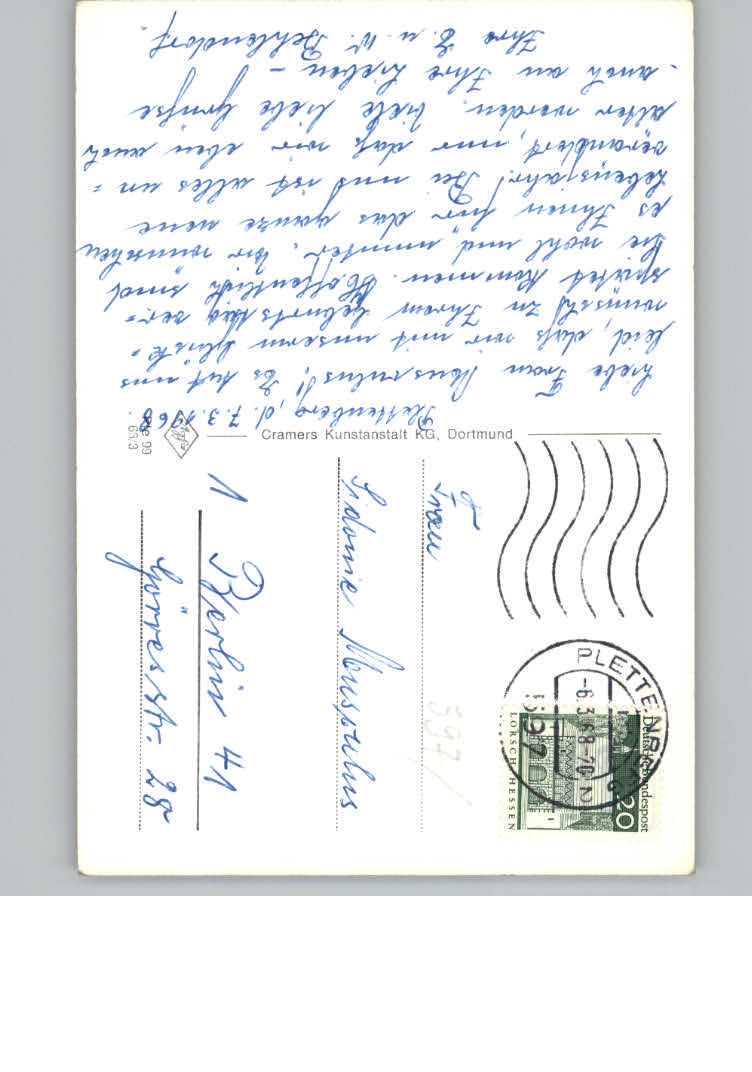 Plettenberg, d. 7.3.1968.
Liebe Frau Monspulus! Es tut uns
leid, daß wir mit unsern Glück-
wünsch zu Ihrem Geburtstag ver-
spätet kommen. Hoffentlich sind
Sie wohl und munter. Wir wünschen
es Ihnen für das ganze neue
Lebensjahr! Bei uns ist alles un-
verändert, nur, daß wir eben auch
älter werden. Viele liebe Grüße
- auch an Ihre Lieben -
Ihre E. u. W. Behlendorf.
Cramers Kunstanstalt KG, Dortmund
Ple 99
66/3
Frau
Sidonie Monspulus
1 Berlin 41
Görresstr. 28
597/
PLETTENBERG
-6.3.68-20
597
Deutsche Bundespost
20
LORSCH/HESSEN